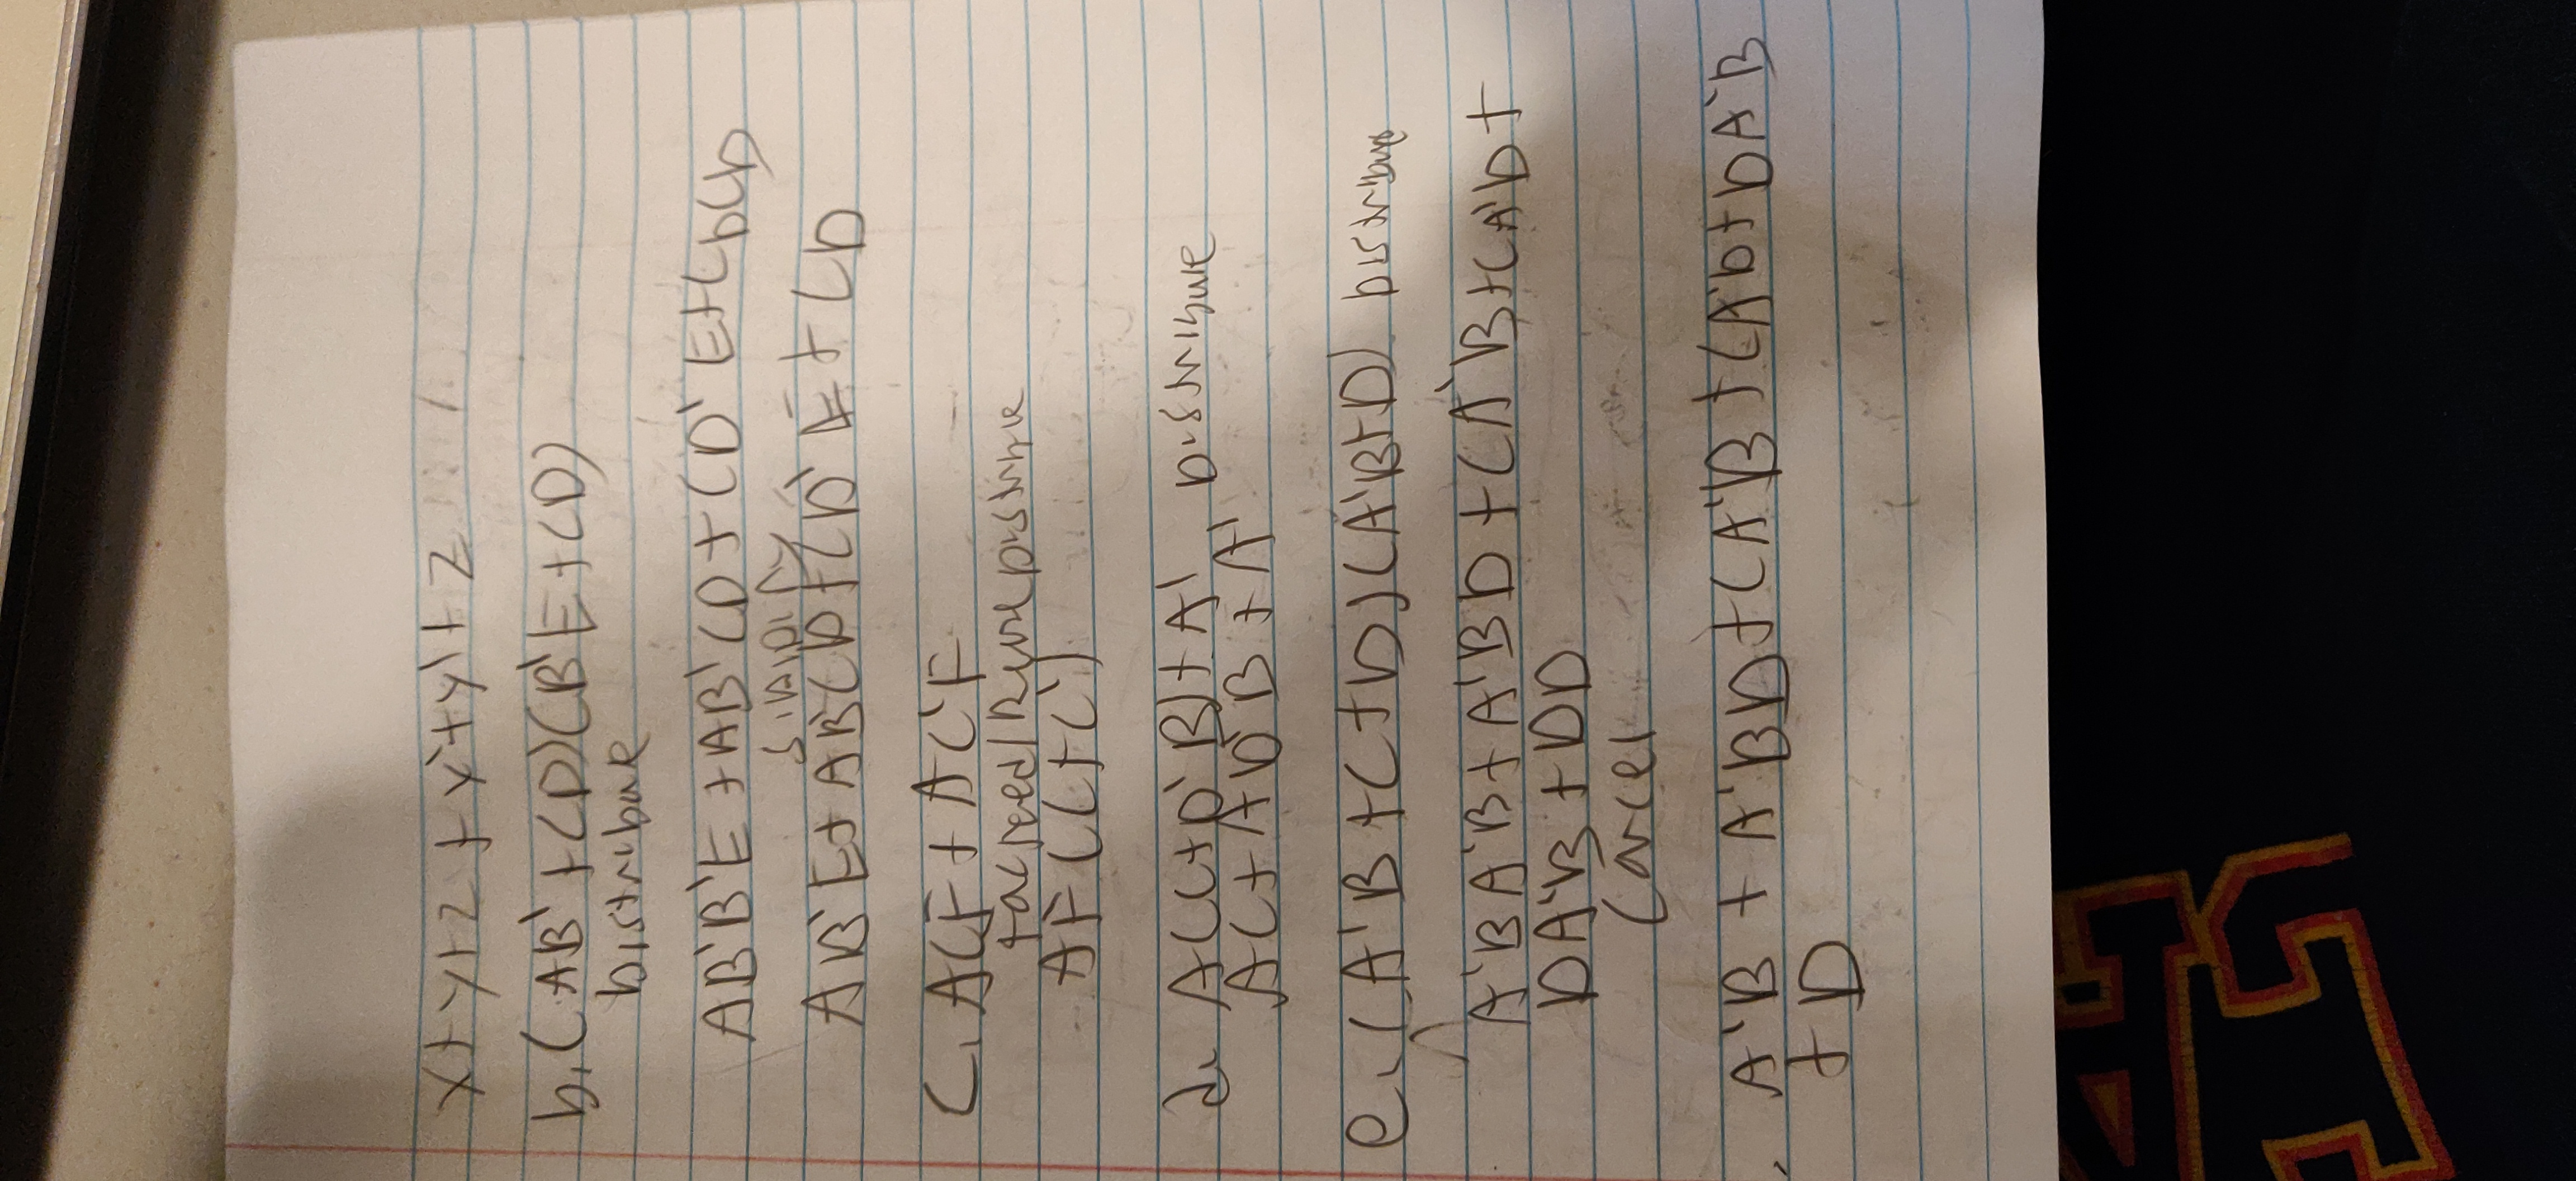 x+y+z+x'+y'+z
b. (AB'+CD)(B'E+CD)
Distribute
AB'B'E+AB'CD+CD'E+CDCD
Simplify
AB'E+AB'CD+CD'E+CD
C. ACF+AC'F
AF(C+C')
d. A(C+D'B)+A' Distribute
AC+AD'B+A'
e. (A'B+C+D)(A'B+D) Distribute
A'BA'B+A'BD+CA'B+CA'D+
DA'B+DD
Cancel
A'B+A'BD+CA'B+CA'D+DA'B
+D